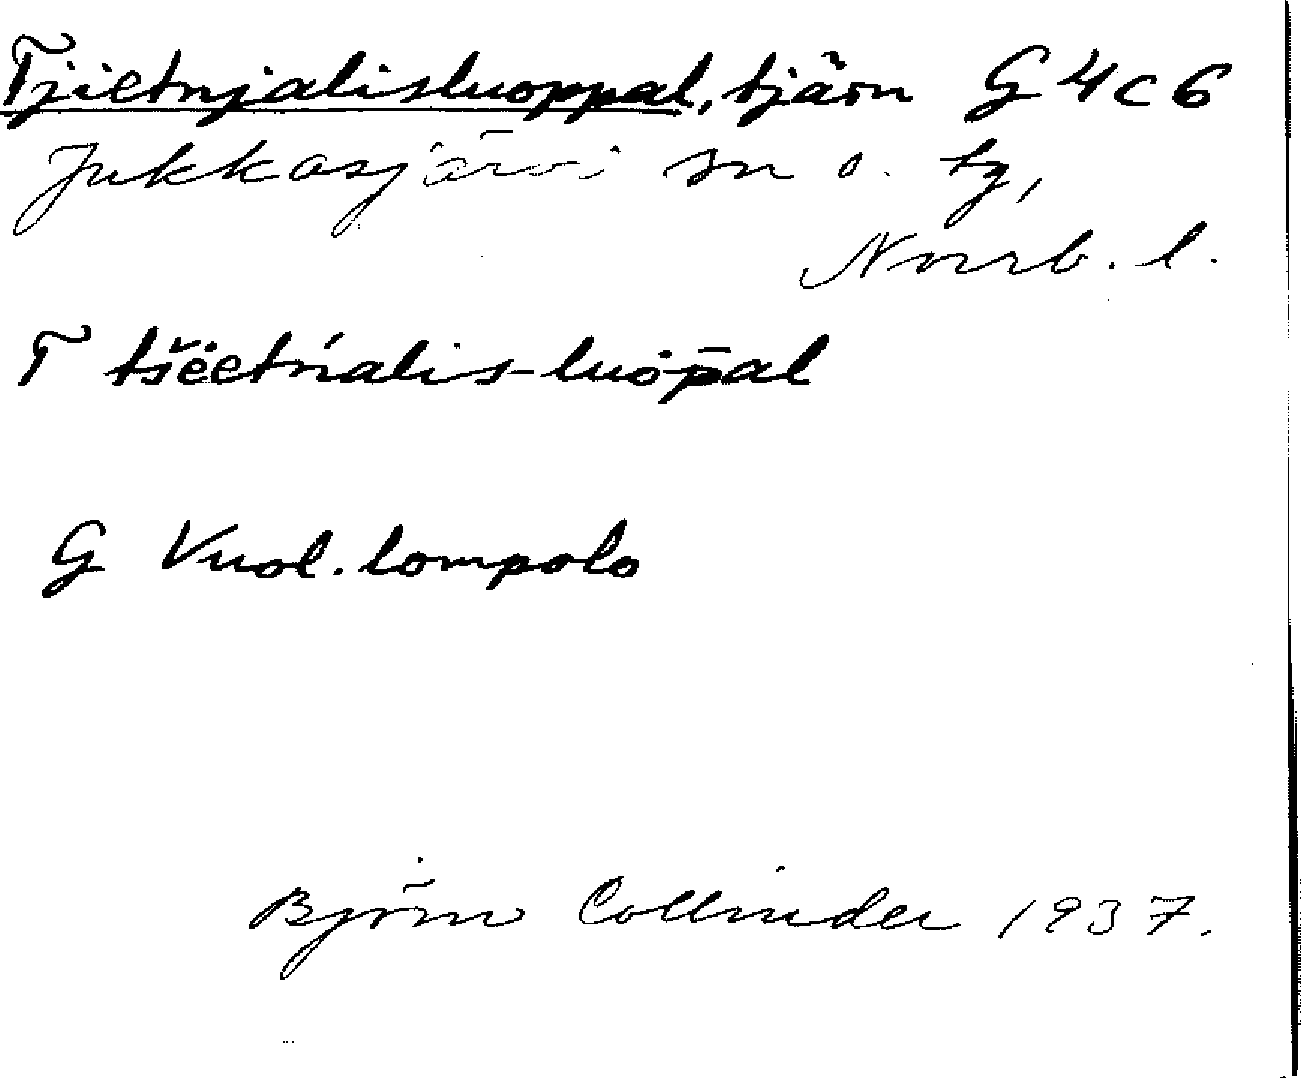 Tjietnjalisluoppal, tjärn G 4 c 6
Jukkasjärvi sn o. tg,
Norrb. l.
T tšëetńalis-luöp̄al
G Vuol. lompolo
Björn Collinder 1937.